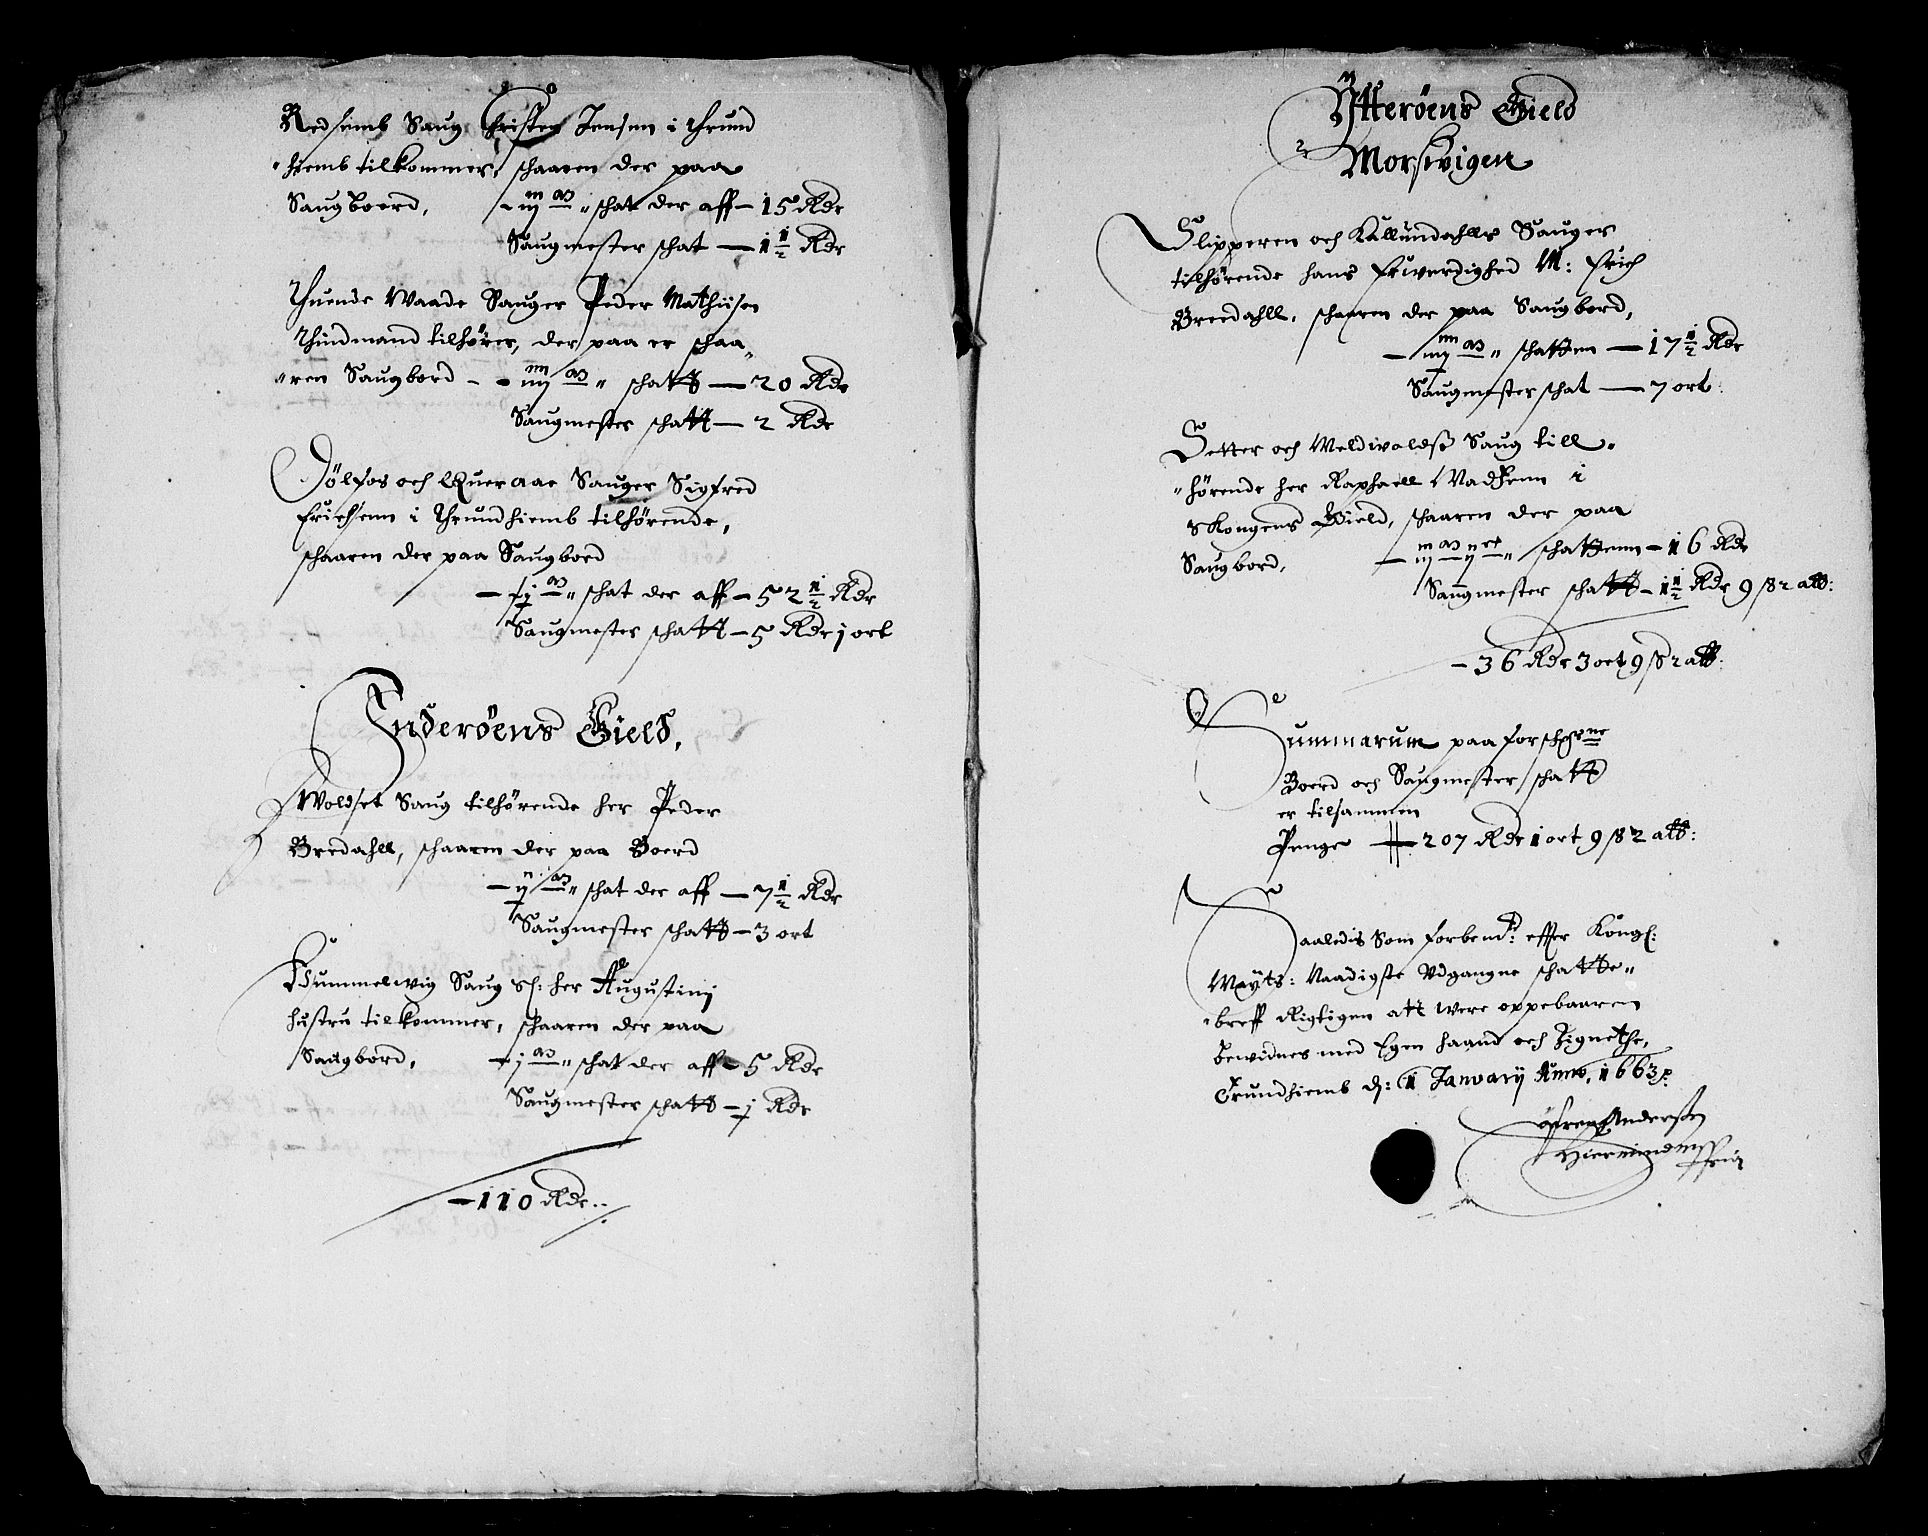 Redsemb Saug Christen Jensen i thrund
hiemb tilkommer, schaaren der paa
Saugboerd, – iij m as schat der aff – 15 Rdr
Saugmester schat – 1½ Rdr
Thuende Waade Sauger Peder Mathiisen
thindmand tilhører, der paa er schaa„
„ren Saugbord – iiij m as schatt – 20 Rdr
Saugmester schatt – 2 Rdr
Dölfos och Queraae Sauger Sigfred
Erichsenn i Thrundhiemb tilhørende,
schaaren der paa Saugbord
schat der aff – 52½ Rdr
Saugmester schatt – 5 Rdr j ort
Inderöens Gield,
Woldset Saug tilhørende her Peder
Bredahll, schaaren der paa Boerd
– ij as schat der aff – 7½ Rdr
Saugmester schatt – 3 ort
Hummelwig Saug Sl: her Augustinj
hustru tilkommer, schaaren der paa
Saugbord, – j as schat der aff – 5 Rdr
Saugmester schatt – j Rdr
– 110 Rdr
Ytteröens Gield
Morswigen
Slipperen och Kallundahlls Sauger
tilhørende hans Erwerdighed M: Erich
Breedahll, schaaren der paa Saugbord,
– iiij m as schatten – 17½ Rdr
Saugmesterschat – 7 ort
Setter och Meldwoldss Saug till„
„hørende her Raphaell Madtzenn i
Skongens Gield, schaaren der paa
Saugbord, – iij m as schattenn – 16 Rdr
Saugmester schatt – 1½ Rdr 9 s 2 alb:
– 36 Rdr 3 ort 9 s 2 alb:
Summarum paa forschrne
Boerd och Saugmester schatt
er tilsammen
Penge – 207 Rdr 1 ort 9 s 2 alb:
Saaledis Som forbend: effter Kongl:
Mayts: Naadigste Udgangne schatte„
„breff Rigtigen att were oppebaaren
bewidnes med Egen haand och Zignethe,
Trundhiemb d: 1 January Anno, 1663
Anderssen